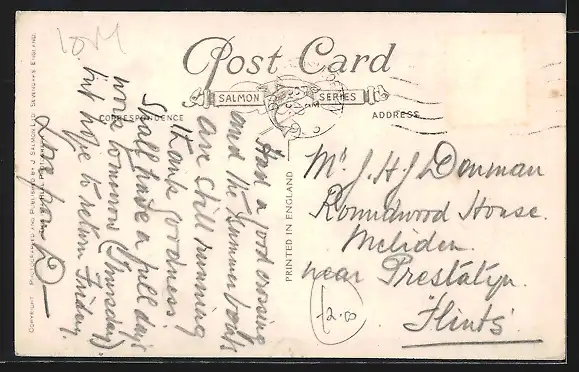 IOM
Post Card
SALMON SERIES
CORRESPONDENCE
ADDRESS
COPYRIGHT PHOTOGRAPHED AND PUBLISHED BY J. SALMON LTD. SEVENOAKS ENGLAND.
PRINTED IN ENGLAND
Had a good crossing
and the summer boats
are still running
thank goodness.
Shall have a full day's
work tomorrow (Thursday).
but hope to return Friday.
Love from D
Mrs J. H. J Donman
Roundwood House.
Meliden.
near Prestatyn.
Flints
£2.00